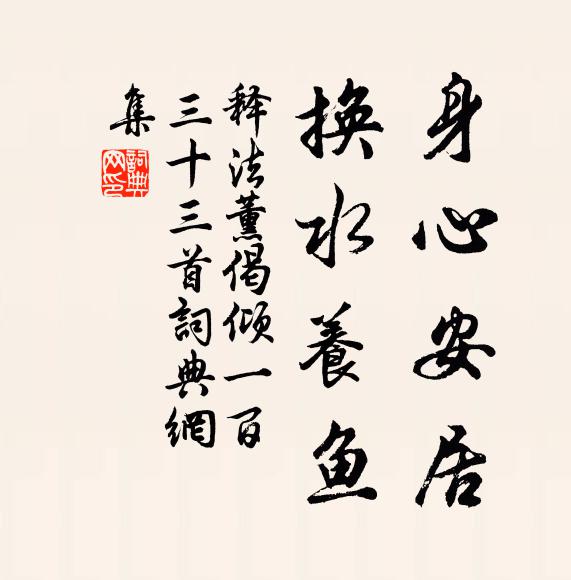 身心安居
换水養鱼
释法薰偈倾一百
三十三首詞典網
集
詞典網印